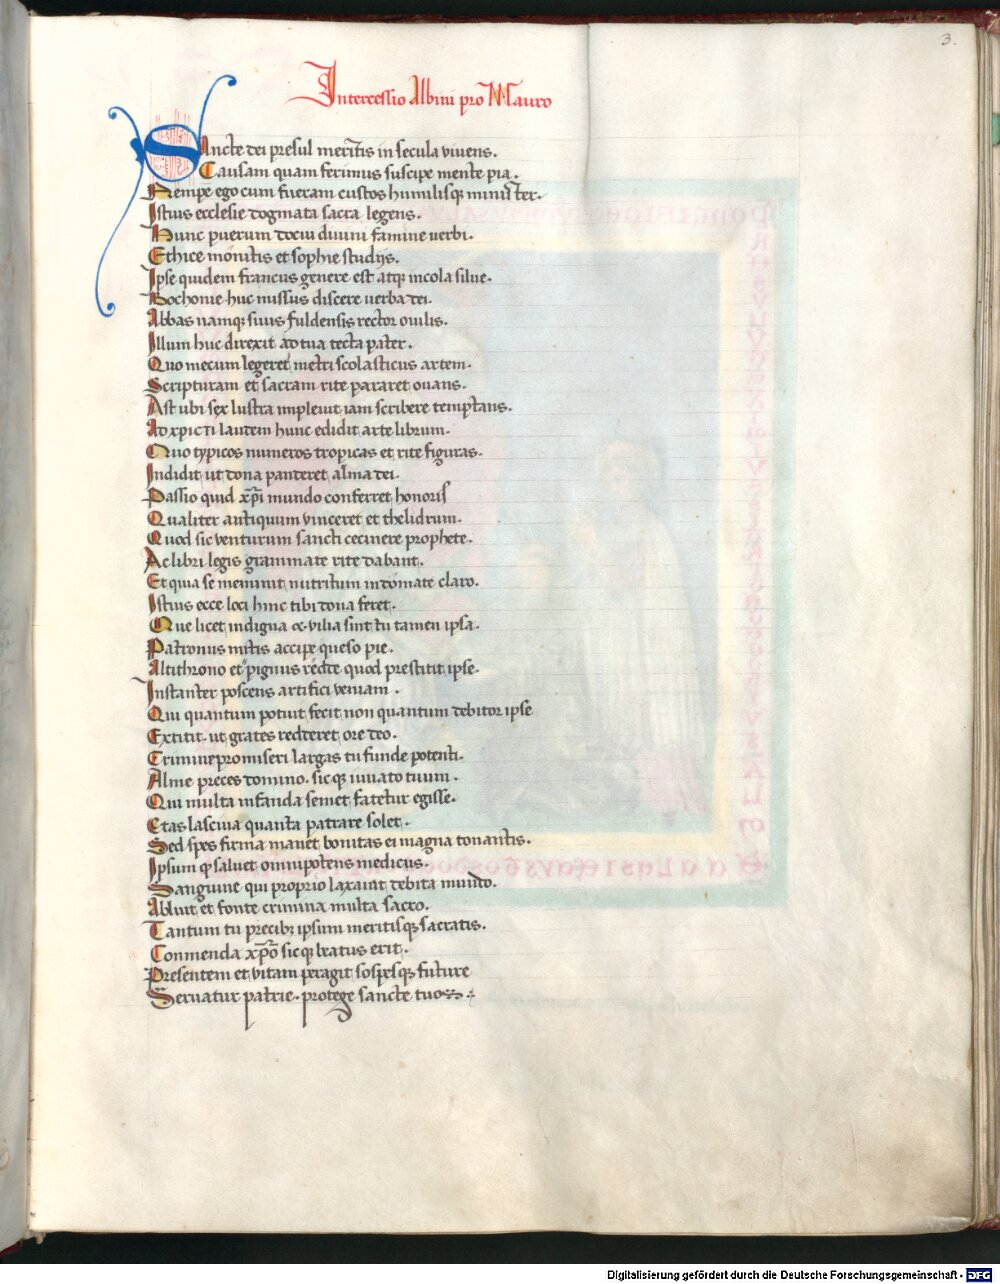 3.
Intercessio Albini pro Mauro
Sancte dei presul meritis in secula vivens.
Causam quam ferimus suscipe mente pia.
Nempe ego cum fueram custos humilisqꝫ minister.
Istius ecclesie dogmata sacra legens.
Hunc puerum docui divini famine verbi.
Ethice monitis et sophie studijs.
Ipse quidem francus genere est atqꝫ incola silue.
Bochonie huc missus discere verba dei.
Abbas namqꝫ suus fuldensis rector ouilis.
Illum huc direxit ad tua tecta pater.
Quo mecum legeret metri scolasticus artem.
Scripturam et sacram rite pararet ouans.
Ast ubi sex lustra impleuit iam scribere temptans.
Ad xpicti laudem hunc edidit arte librum.
Quo typicos numeros tropicas et rite figuras.
Indidit ut dona panderet alma dei.
Passio quid xp̅i mundo conferret honoris
Qualiter antiquum vinceret et thelidrum.
Quod sic venturum sancti cecinere prophete.
Ac libri legis grammate rite dabant.
Et quia se meminit nutritum in domate claro.
Istius ecce loci hinc tibi dona feret.
Que licet indigna & vilia sint tu tamen ipsa.
Patronus mitis accipe queso pie.
Altithrono et pignus redde quod prestitit ipse.
Instanter poscens artifici veniam.
Qui quantum potuit fecit non quantum debitor ipse
Extitit. ut grates redderet ore deo.
Crimine pro miseri largas tu funde potenti.
Alme preces domino. sicqꝫ iuuato tuum.
Qui multa infanda semet fatetur egisse.
Etas lasciua quanta patrare solet.
Sed spes firma manet bonitas ei magna tonantis.
Ipsum qꝫ saluet omnipotens medicus.
Sanguine qui proprio laxauit debita mundo.
Abluit et fonte crimina multa sacro.
Tantum tu precibꝫ ipsum meritisqꝫ sacratis.
Conmenda xp̅o sicqꝫ beatus erit.
Presentem et vitam peragit sospesqꝫ future
Seruatur patrie. protege sancte tuos
Digitalisierung gefördert durch die Deutsche Forschungsgemeinschaft - DFG